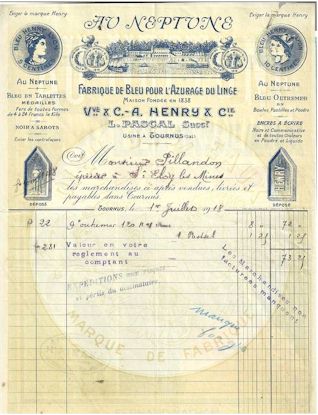 Exiger la marque Henry
Exiger la marque Henry
AU NEPTUNE
BLEU HENRY
D'ENTIN
BLEU HENRY
D'ENTIN
AU NEPTUNE
BLEU EN TABLETTES
MÉDAILLES
Fers de toutes formes
de 4 à 24 francs le Kilo
NOIR À SABOTS
Eviter les contrefaçons
FABRIQUE DE BLEU POUR L'AZURAGE DU LINGE
MAISON FONDÉE EN 1838
Vve & C.-A. HENRY & Cie
L. PASCAL Succr
USINE À TOURNUS
AU NEPTUNE
BLEU OUTREMER
en Boules, Pastilles et Poudre
ENCRES A ÉCRIRE
Noire et Communicative
et de toutes Couleurs
en Poudre et Liquide
DÉPOSÉ
DÉPOSÉ
Doit Monsieur Pillandon
épicier à St Eloy les Mines
les marchandises ci après vendues, livrées et
payables dans Tournus.
TOURNUS, 1er Juillet 1918
22 d'outremer 120
8 72
1 25
281 Valeur en votre
règlement au
comptant
73 25
EXPÉDITIONS aux risques
et périls du destinataire.
Les Marchandises non
facturées manquent
manque
MARQUE DE FABRIQUE